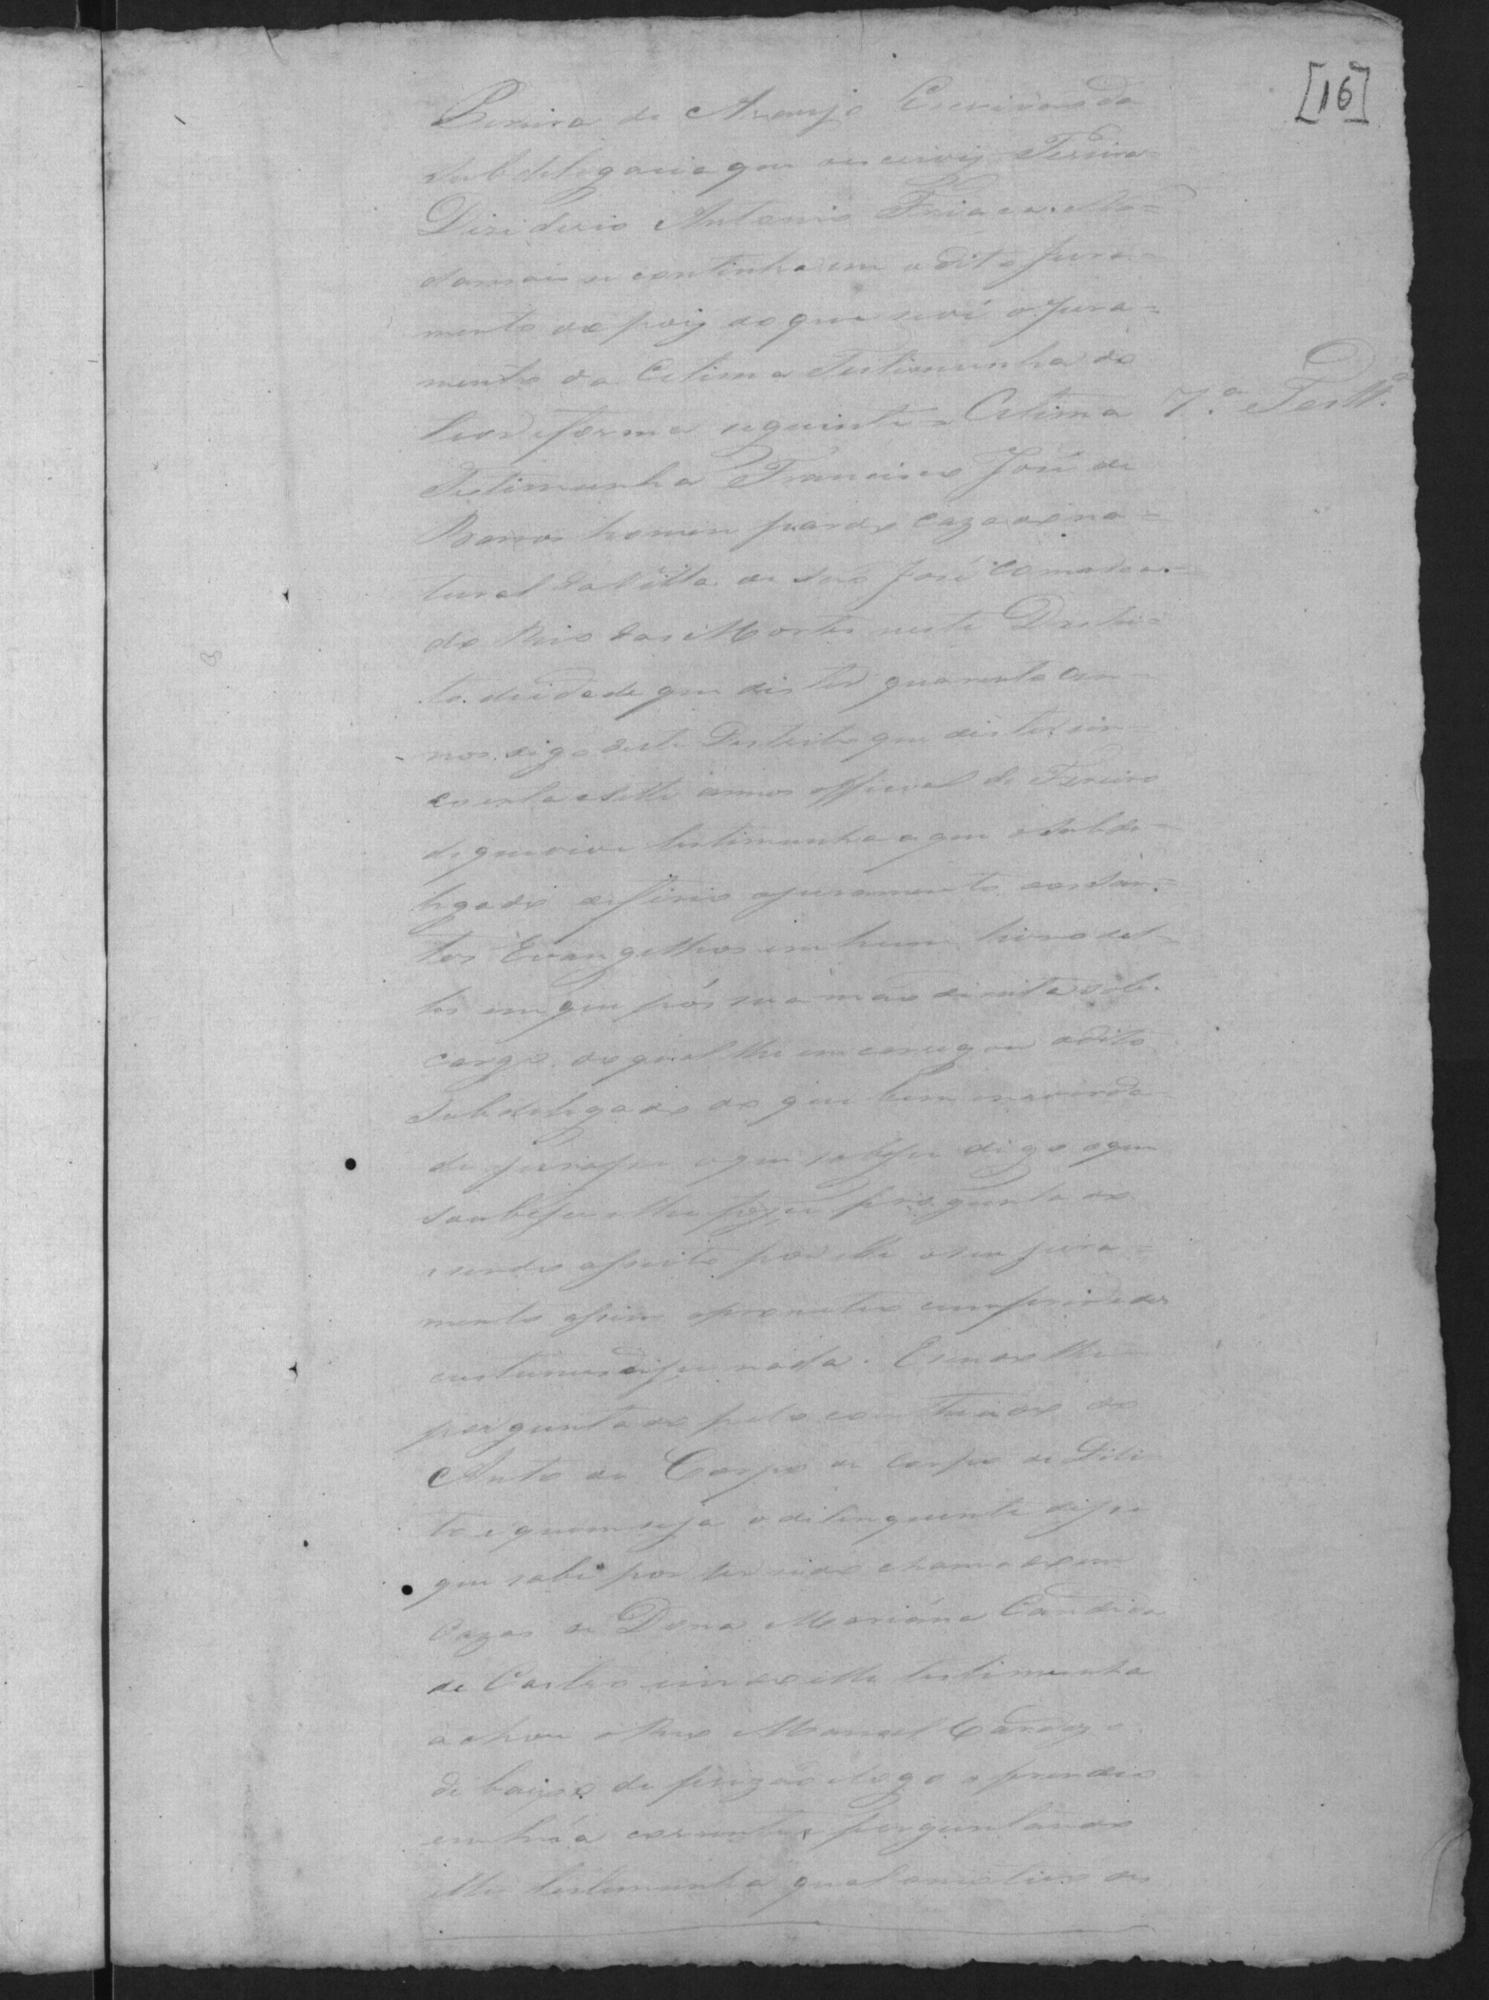 [16]
de Araujo Escrivão da
subdelegacia que os escrevy
Antonio
damais se continha em o dito Jura=
mento depoiz do que se vê o Jura=
mento da Cetima Testimunha do
forma seguinte = Cetima
7.ª Test.ª
Testimunha Francisco José de
Barros homem pardo cazado na=
tural da Villa de São José Comarca
do Rio das Mortes neste Destri=
to. de idade que dis ter quarenta an=
nos. digo deste Destrito que dis ter sin=
coenta e sette annos official de Ferreiro
de que vive testimunha a quem o Subde=
legado defirio o juramento dos San=
tos Evangelhos em hum livro del=
les em que pôs sua mão direita sob.
cargo do qual lhe encarregou o dito
Subdelegado do que bem e na verda
de jurasse o que sobesse digo o que
soubesse e lhe fosse preguntado
sendo asseito por elle o seu jura=
mento assim o prometeo cumprir e dos
custumes disse nada. E sendo lhe
perguntado pelo contheudo do
Auto de Corpo de Corpo de Deli
to e quem seja o delinquente disse
que sabe por ter sido chamado em
Cazas de Dona Marianna Candida
de Castro indo elle testimunha
achou o Reo Manoel
de baixo de prizão e logo o prendeo
em húa corrente, e perguntando
elle testimunha qual o motivo de